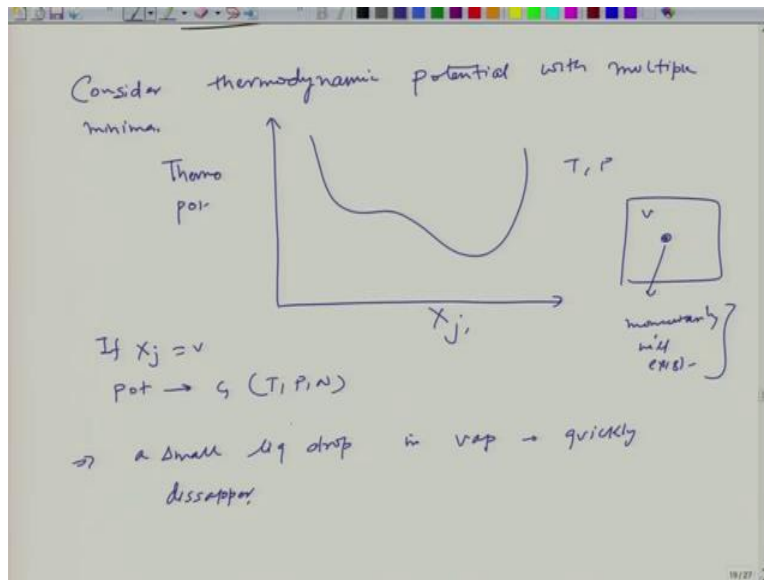 Consider thermodynamic potential with multiple
minima.
Thermo
pot.
T, P
V
Xj,
momentarily
will
exist
If Xj = v
pot → G (T, P, N)
⇒ a small liq drop in vap → quickly
dissapper.
19/27